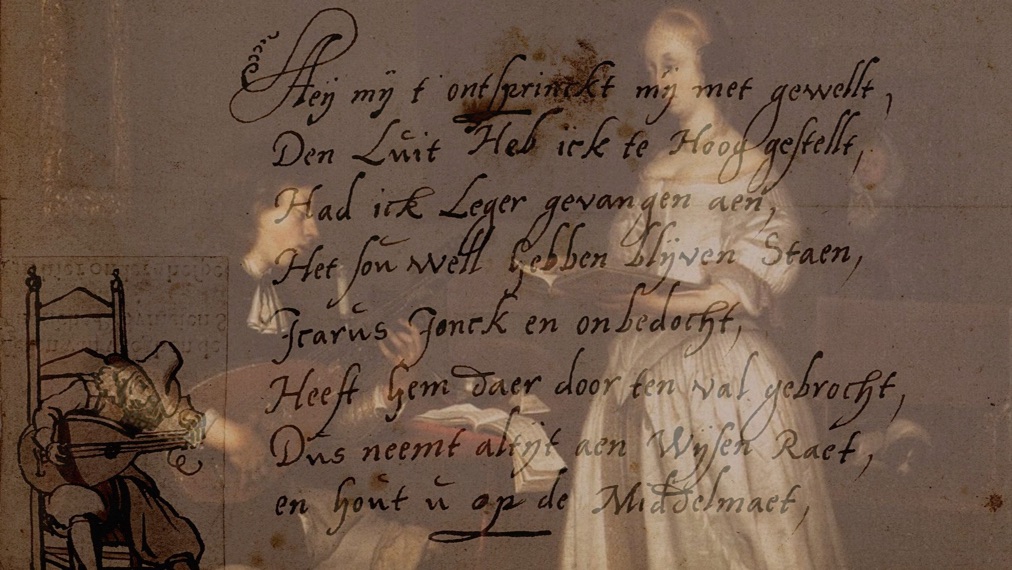 Aeij mij t' ontsprinckt mij met gewellt,
Den Luit Heb ick te Hoog gestellt,
Had ick Leger gevangen aen,
Het sou well hebben blijven Staen,
Icarus Jonck en onbedocht,
Heeft hem daer door ten val gebrocht,
Dus neemt altijt aen Wijsen Raet,
en hout u op de Middelmaet,